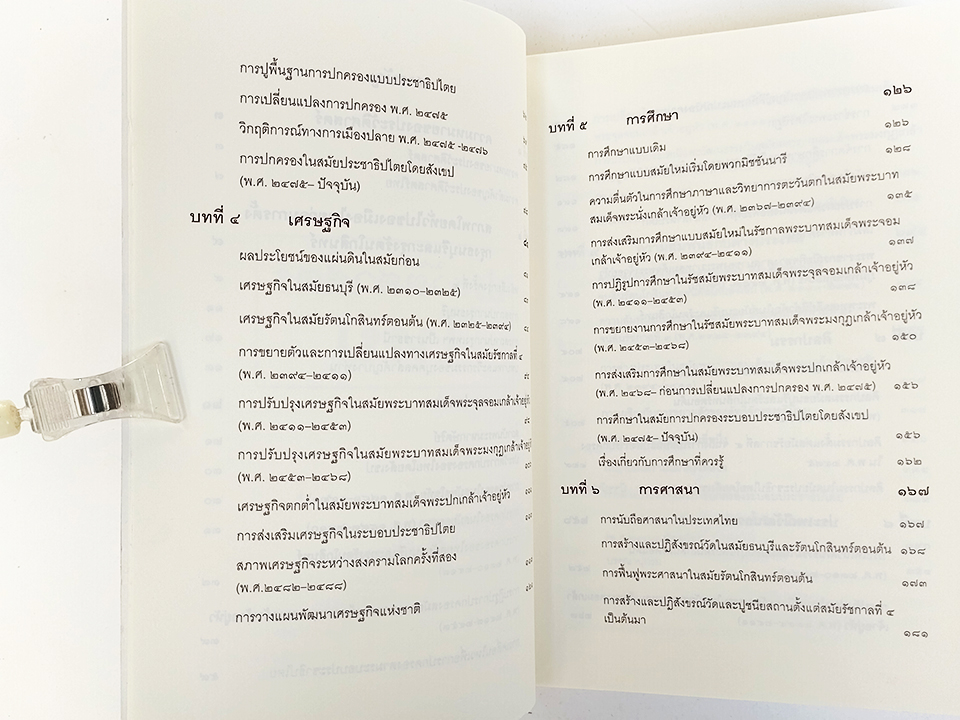 การปูพื้นฐานการปกครองแบบประชาธิปไตย
การเปลี่ยนแปลงการปกครอง พ.ศ. ๒๔๗๕
วิกฤติการณ์ทางการเมืองปลาย พ.ศ. ๒๔๗๕ -๒๔๗๖
การปกครองในสมัยประชาธิปไตยโดยสังเขป
(พ.ศ. ๒๔๗๕– ปัจจุบัน)
บทที่ ๔ เศรษฐกิจ
ผลประโยชน์ของแผ่นดินในสมัยก่อน
เศรษฐกิจในสมัยธนบุรี (พ.ศ. ๒๓๑๐-๒๓๒๕)
เศรษฐกิจในสมัยรัตนโกสินทร์ตอนต้น (พ.ศ. ๒๓๒๕-๒๓๙๔)
การขยายตัวและการเปลี่ยนแปลงทางเศรษฐกิจในสมัยรัชกาลที่ ๔
(พ.ศ. ๒๓๙๔–๒๔๑๑)
การปรับปรุงเศรษฐกิจในสมัยพระบาทสมเด็จพระจุลจอมเกล้าเจ้าอยู่หัว
(พ.ศ. ๒๔๑๑–๒๔๕๓)
การปรับปรุงเศรษฐกิจในสมัยพระบาทสมเด็จพระมงกุฎเกล้าเจ้าอยู่หัว
(พ.ศ. ๒๔๕๓-๒๔๖๘)
เศรษฐกิจตกต่ำในสมัยพระบาทสมเด็จพระปกเกล้าเจ้าอยู่หัว
การส่งเสริมเศรษฐกิจในระบอบประชาธิปไตย
สภาพเศรษฐกิจระหว่างสงครามโลกครั้งที่สอง
(พ.ศ.๒๔๘๒-๒๔๘๘)
การวางแผนพัฒนาเศรษฐกิจแห่งชาติ
บทที่ ๕ การศึกษา ๑๒๖
การศึกษาแบบเดิม ๑๒๖
การศึกษาแบบสมัยใหม่เริ่มโดยพวกมิชชันนารี ๑๒๘
ความตื่นตัวในการศึกษาภาษาและวิทยาการตะวันตกในสมัยพระบาท
สมเด็จพระนั่งเกล้าเจ้าอยู่หัว (พ.ศ. ๒๓๖๗–๒๓๙๔) ๑๓๕
การส่งเสริมการศึกษาแบบสมัยใหม่ในรัชกาลพระบาทสมเด็จพระจอม
เกล้าเจ้าอยู่หัว (พ.ศ. ๒๓๙๔–๒๔๑๑) ๑๓๗
การปฏิรูปการศึกษาในรัชสมัยพระบาทสมเด็จพระจุลจอมเกล้าเจ้าอยู่หัว
(พ.ศ. ๒๔๑๑–๒๔๕๓) ๑๓๘
การขยายงานการศึกษาในรัชสมัยพระบาทสมเด็จพระมงกุฎเกล้าเจ้าอยู่หัว
(พ.ศ. ๒๔๕๓-๒๔๖๘) ๑๕๐
การส่งเสริมการศึกษาในสมัยพระบาทสมเด็จพระปกเกล้าเจ้าอยู่หัว
(พ.ศ. ๒๔๖๘– ก่อนการเปลี่ยนแปลงการปกครอง พ.ศ. ๒๔๗๕) ๑๕๖
การศึกษาในสมัยการปกครองระบอบประชาธิปไตยโดยสังเขป
(พ.ศ. ๒๔๗๕– ปัจจุบัน) ๑๕๖
เรื่องเกี่ยวกับการศึกษาที่ควรรู้ ๑๖๒
บทที่ ๖ การศาสนา ๑๖๗
การนับถือศาสนาในประเทศไทย ๑๖๗
การสร้างและปฏิสังขรณ์วัดในสมัยธนบุรีและรัตนโกสินทร์ตอนต้น ๑๖๘
การฟื้นฟูพระศาสนาในสมัยรัตนโกสินทร์ตอนต้น ๑๗๓
การสร้างและปฏิสังขรณ์วัดและปูชนียสถานตั้งแต่สมัยรัชกาลที่ ๔
เป็นต้นมา ๑๘๑